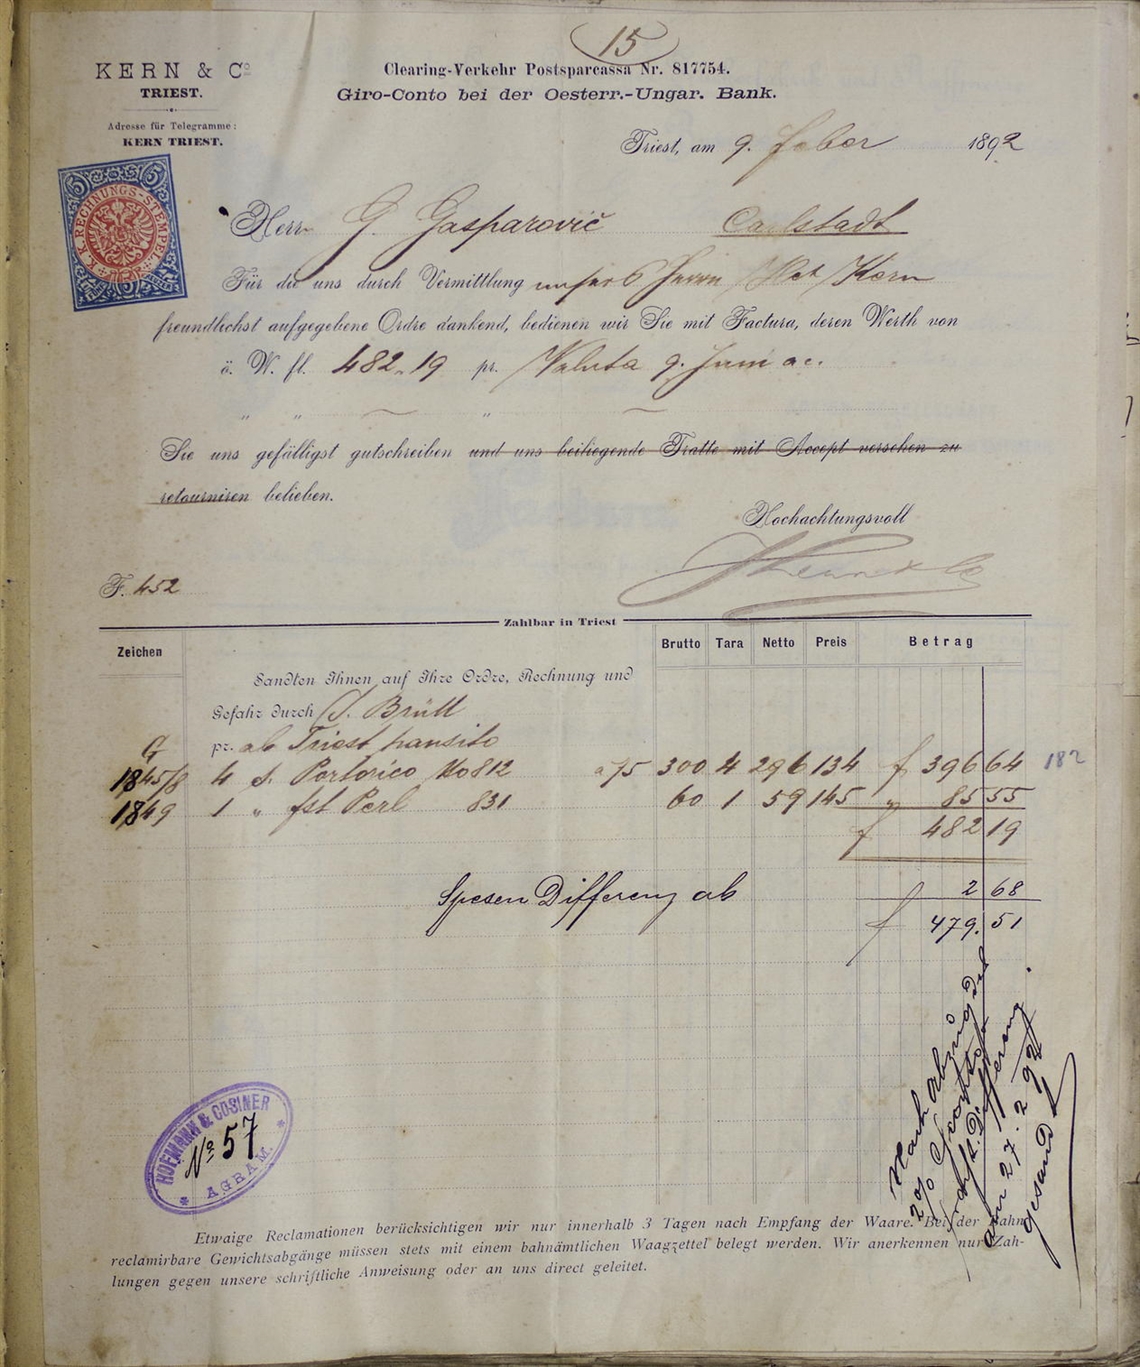 15
KERN & Co
TRIEST.
Adresse für Telegramme:
KERN TRIEST.
Clearing-Verkehr Postsparcassa Nr. 817754.
Giro-Conto bei der Oesterr.-Ungar. Bank.
Triest, am 9. Feber 1892
5 5
K. K. RECHNUNGS-STEMPEL
Herrn G. Gasparovič Carlstadt
Für die uns durch Vermittlung unsers Herrn Kern
freundlichst aufgegebene Ordre dankend, bedienen wir Sie mit Factura, deren Werth von
ö. W. fl. 482.19 pr. Valuta 9. Juni a.c.
" " "
Sie uns gefälligst gutschreiben und uns beiliegende Tratte mit Accept versehen zu
retourniren belieben.
Hochachtungsvoll
F. 452
Zahlbar in Triest
Zeichen Brutto Tara Netto Preis Betrag
Sandten Ihnen auf Ihre Ordre, Rechnung und
Gefahr durch S. Brüll
G pr. ab Triest transito
1845/8 4 S. Portorico No 812 a 75 300 4 296 134 f 396 64 182
1849 1 " fst Perl 831 60 1 59 145 " 85 55
f 482 19
Spesen Differenz ab 2 68
f 479. 51
Nach Abzug des
2% Sconto
u. Differenz
am 27. 2. 92
gesandt
HOFMANN & COSINER
No 57
* AGRAM. *
Etwaige Reclamationen berücksichtigen wir nur innerhalb 3 Tagen nach Empfang der Waare. Bei der Bahn
reclamirbare Gewichtsabgänge müssen stets mit einem bahnämtlichen Waagzettel belegt werden. Wir anerkennen nur Zah-
lungen gegen unsere schriftliche Anweisung oder an uns direct geleitet.